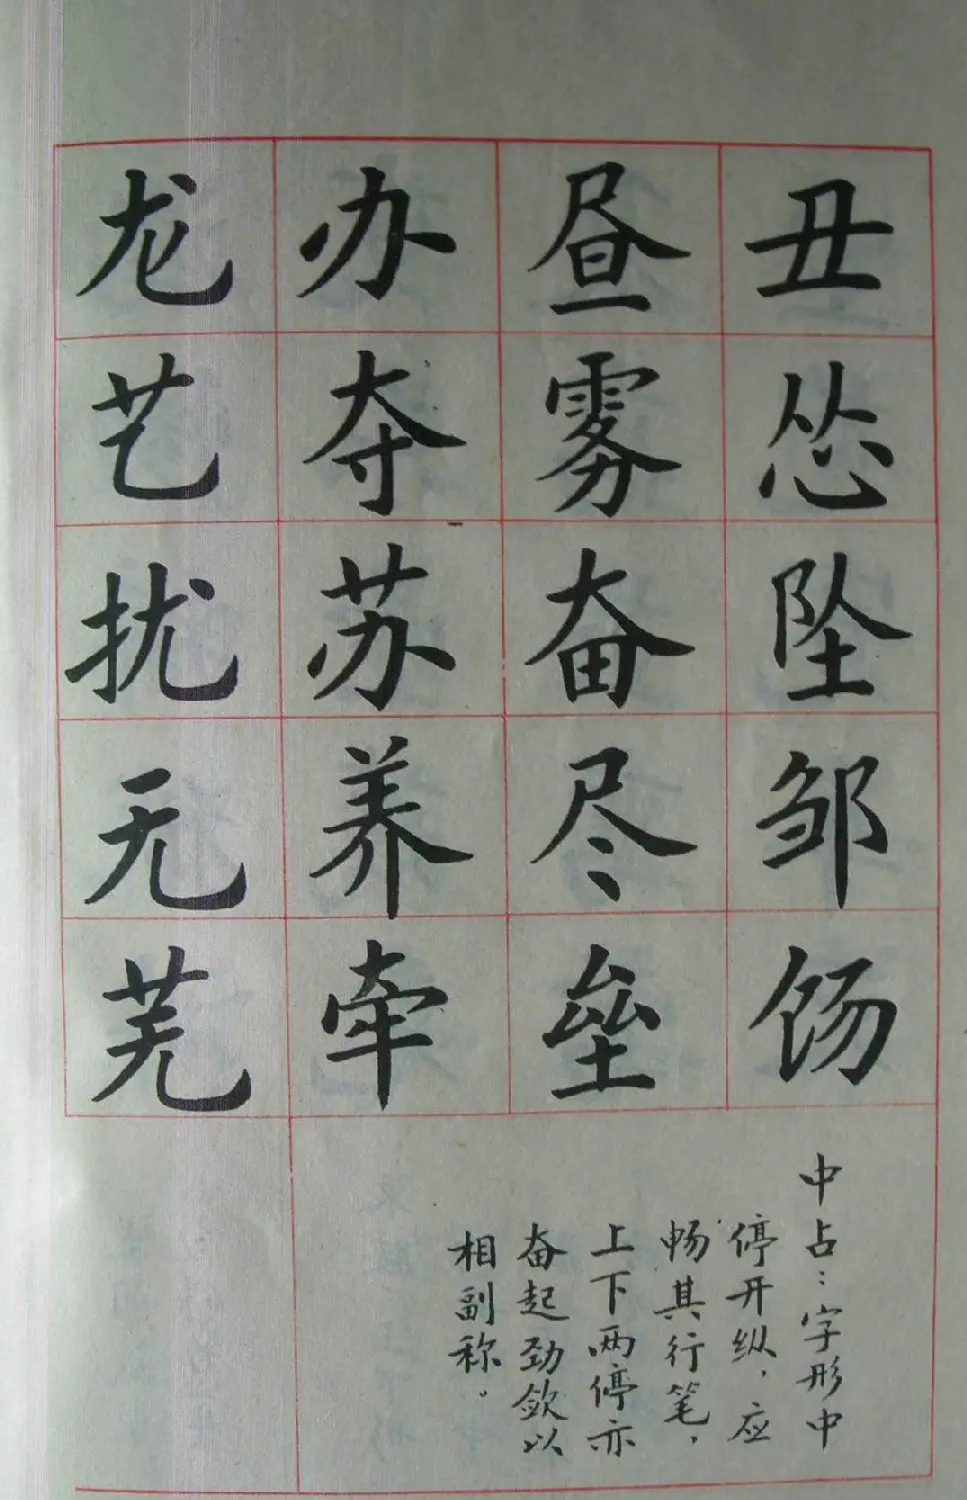 丑怂坠邹饧
昼雾奋尽垒
办夺苏养牵
龙艺扰无芜
中占：字形中
停开纵，应
畅其行笔，
上下两停亦
奋起劲敛以
相副称。